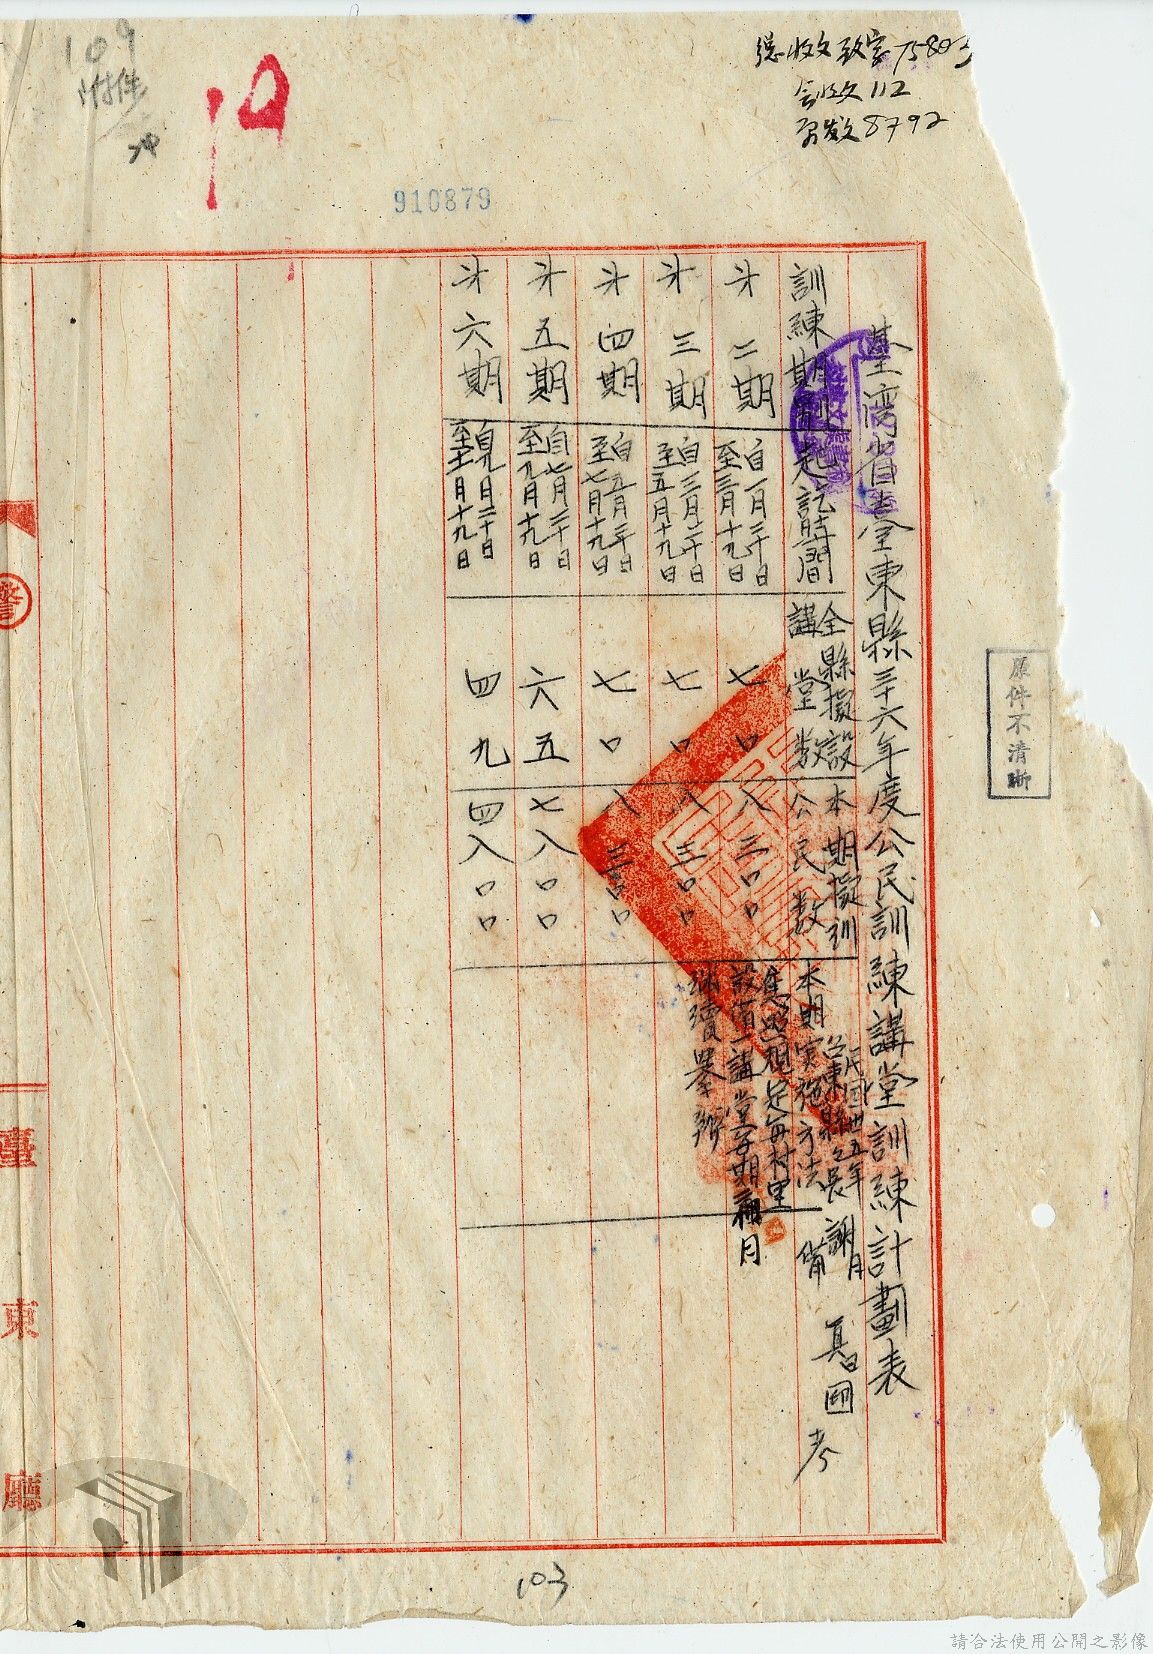 總收文致字75805
會收文112
another發文8792
109
附件
910879
臺湾省臺東縣三十六年度公民訓練講堂訓練計劃表
民國卅五年 月 日
台東縣縣長 謝真 囼
訓練期別 起訖時間 全縣擬設講堂数 本期擬訓公民数 本期実施方法 備考
才二期 自一月二十日至三月十九日 七〇 八三〇〇 依照規定每村里設置一講堂每期兩個月継續舉辦
才三期 自三月二十日至五月十九日 七〇 八三〇〇
才四期 自五月二十日至七月十九日 七〇 八三〇〇
才五期 自七月二十日至九月十九日 六五 七八〇〇
才六期 自九月二十日至十一月十九日 四九 四八〇〇
原件不清晰
警
臺東廳
103
請合法使用公開之影像